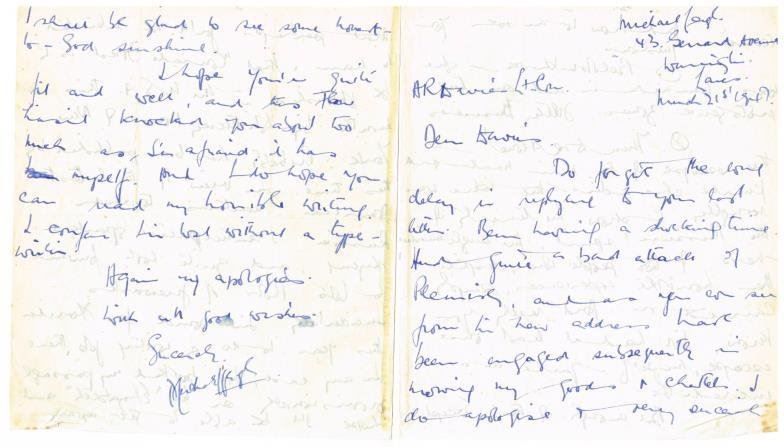 Michael Leigh.
43 Gerrard Avenue
Warrington
Lancs.
March 21st 1947
Dear Davies
Do forgive the long
delay in replying to your last
letter. Been having a shocking time
Had quite a bad attack of
Pleurisy, and as you can see
from the new address have
been engaged subsequently in
moving my goods & chattels. I
do apologise very
I shall be glad to see some honest-
to-God sunshine.
I hope you're quite
fit and well, and this
hasn't knocked you about too
much as, I'm afraid, it has
myself. And I do hope you
can read my horrible writing.
I confess I'm lost without a type-
writer.
Again my apologies.
With all good wishes.
Sincerely,
Michael Leigh